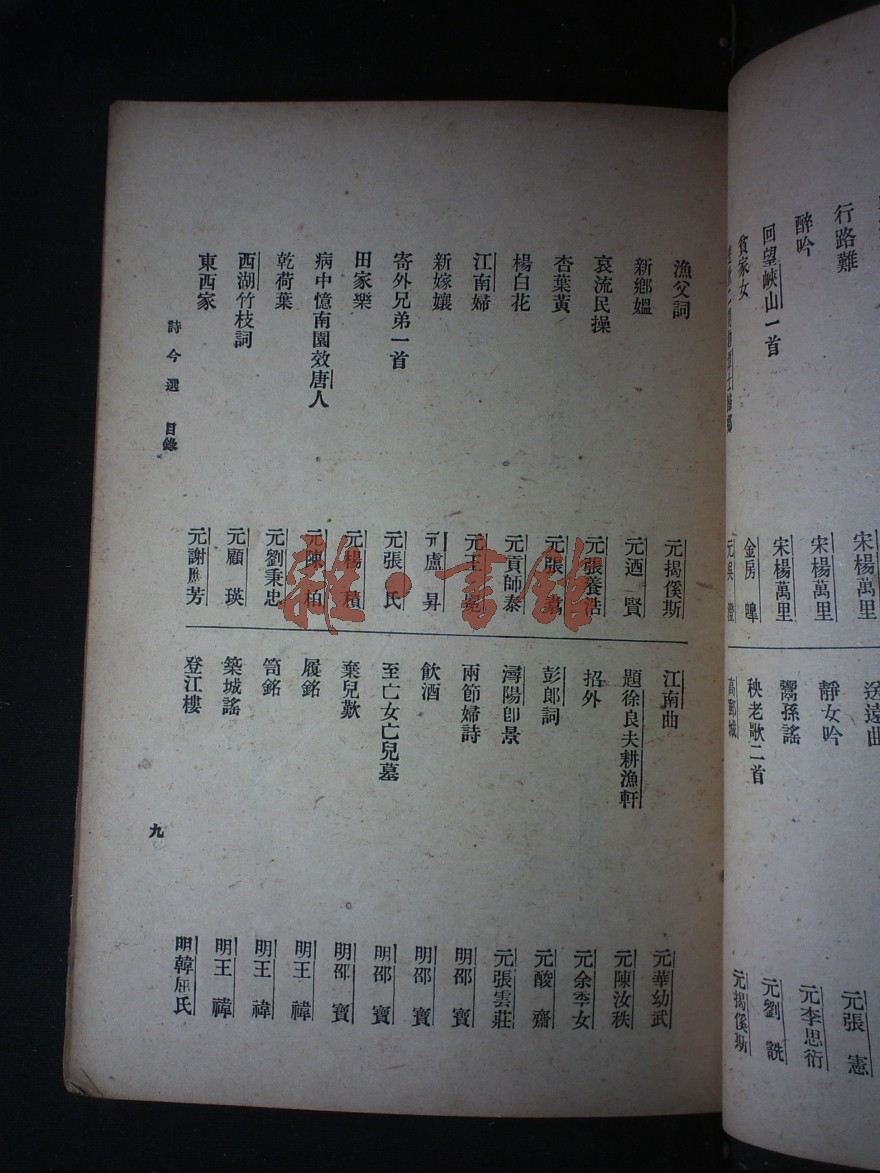 行路難 宋楊萬里
醉吟 宋楊萬里
回望峽山一首 宋楊萬里
貧家女 金房皞
送遠曲 元張憲
靜女吟 元李思衍
鬻孫謠 元劉詵
秧老歌二首 元揭傒斯
高郵城
漁父詞 元揭傒斯
新鄉媼 元迺賢
哀流民操 元張養浩
杏葉黃 元張
楊白花 元貢師泰
江南婦 元王冕
新嫁孃 元盧昇
寄外兄弟一首 元張氏
田家樂 元楊積
病中憶南園效唐人 元陳柏
乾荷葉 元劉秉忠
西湖竹枝詞 元顧瑛
東西家 元謝應芳
江南曲 元華幼武
題徐良夫耕漁軒 元陳汝秩
招外 元余季女
彭郎詞 元酸齋
潯陽卽景 元張雲莊
兩節婦詩 明邵寶
飲酒 明邵寶
至亡女亡兒墓 明邵寶
棄兒歎 明邵寶
履銘 明王禕
笥銘 明王禕
築城謠 明王禕
登江樓 明韓屈氏
詩今選 目錄
九
雜·書館